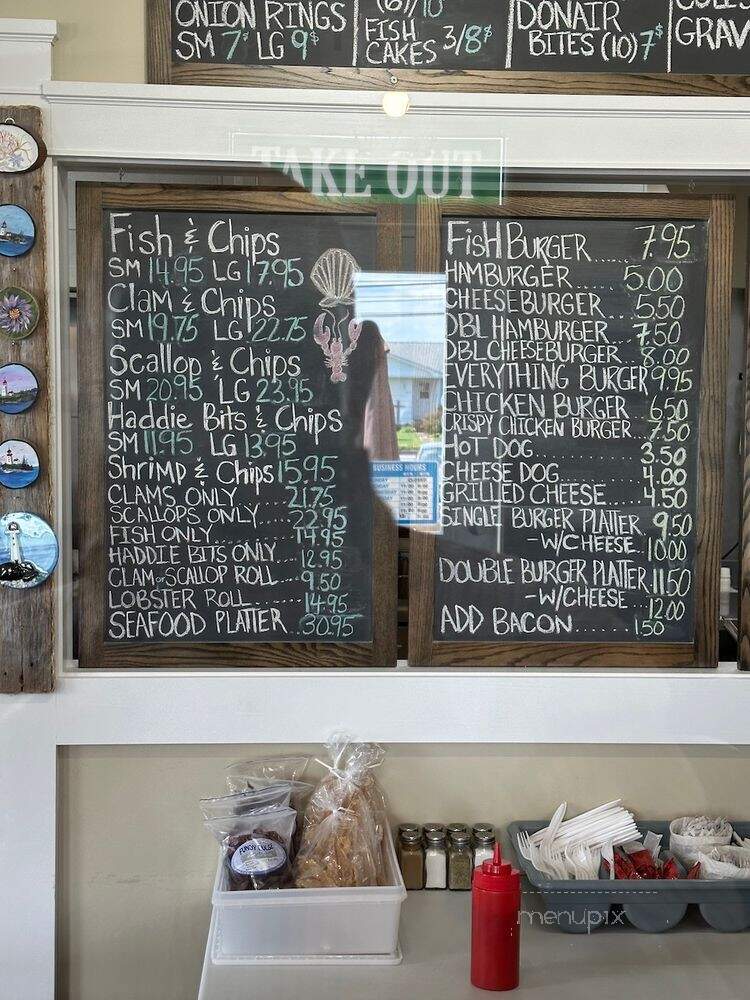 ONION RINGS
SM 7$ LG 9$
(6)/10
FISH
CAKES 3/8$
DONAIR
BITES (10) 7$
GRAV
TAKE OUT
Fish & Chips
SM 14.95 LG 17.95
Clam & Chips
SM 19.75 LG 22.75
Scallop & Chips
SM 20.95 LG 23.95
Haddie Bits & Chips
SM 11.95 LG 13.95
Shrimp & Chips 15.95
CLAMS ONLY 21.75
SCALLOPS ONLY.... 22.95
FISH ONLY........ 14.95
HADDIE BITS ONLY... 12.95
CLAM or SCALLOP ROLL.... 9.50
LOBSTER ROLL........ 14.95
SEAFOOD PLATTER.. 30.95
FISH BURGER...... 7.95
HAMBURGER...... 5.00
CHEESEBURGER 5.50
DBL HAMBURGER.. 7.50
DBL CHEESEBURGER 8.00
EVERYTHING BURGER 9.95
CHICKEN BURGER 6.50
CRISPY CHICKEN BURGER... 7.50
HOT DOG........ 3.50
CHEESE DOG...... 4.00
GRILLED CHEESE... 4.50
SINGLE BURGER PLATTER 9.50
-W/CHEESE.. 10.00
DOUBLE BURGER PLATTER 11.50
-W/CHEESE... 12.00
ADD BACON........ 1.50
BUSINESS HOURS
menupix